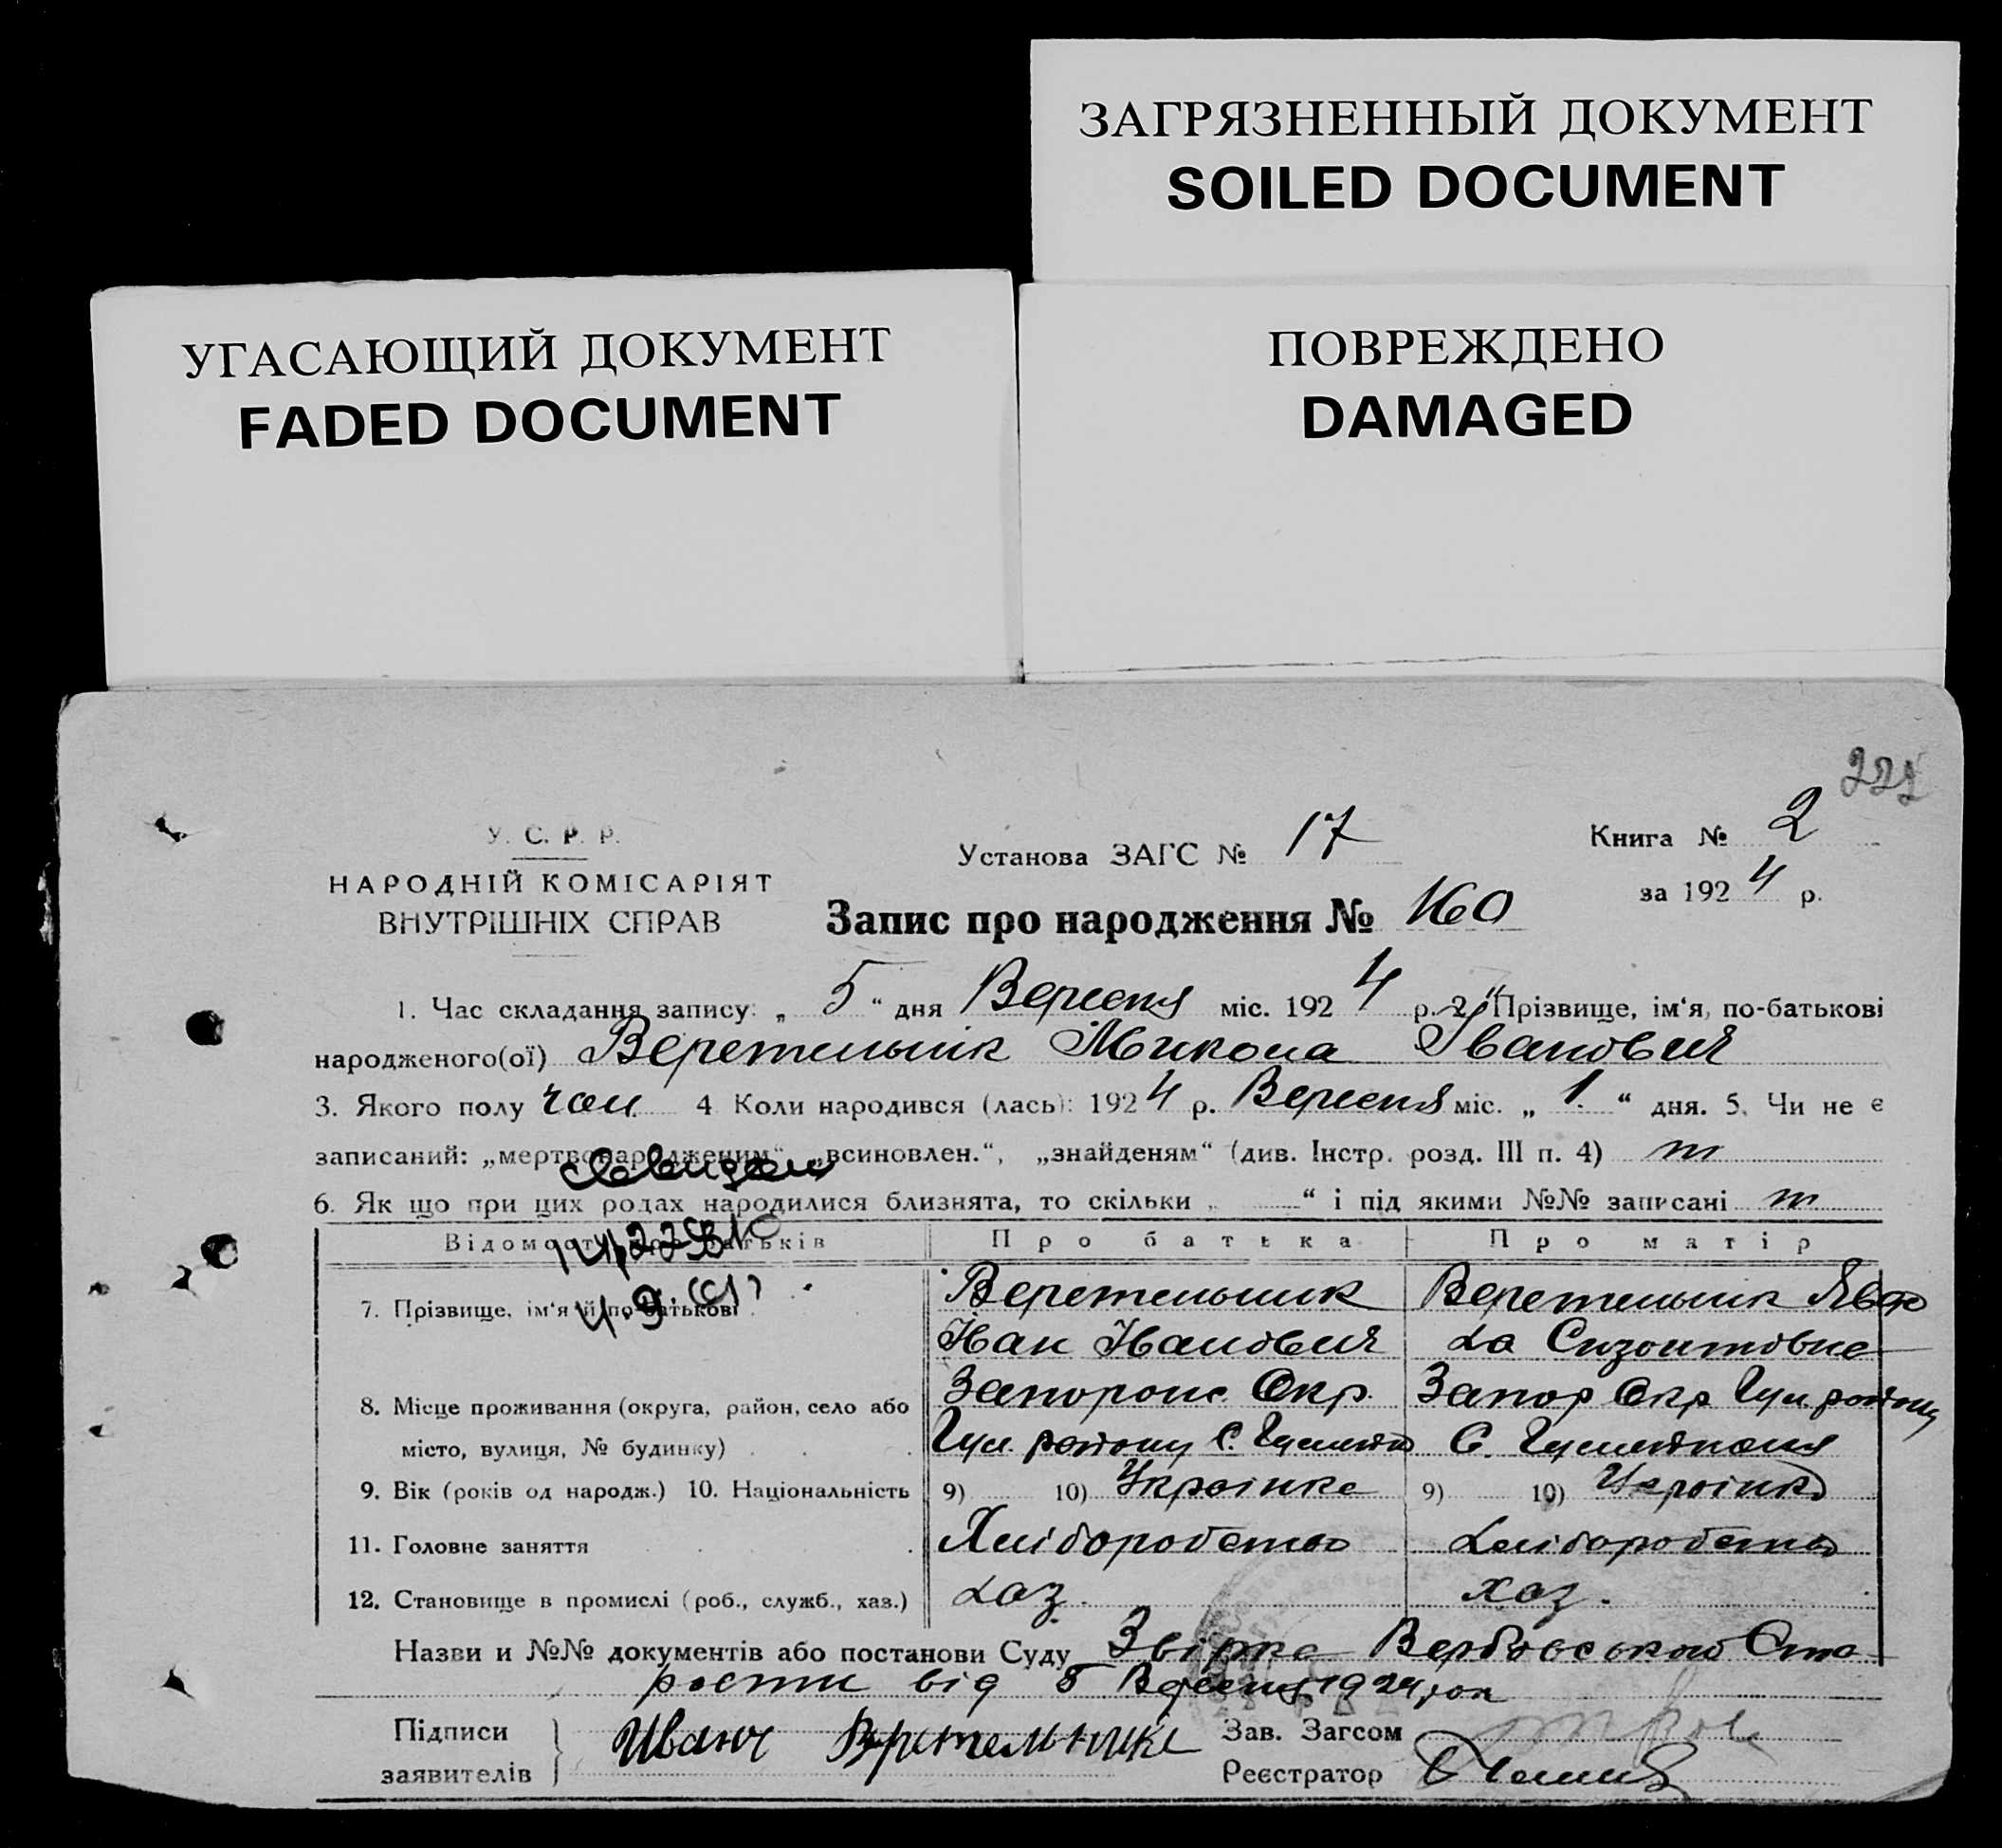 ЗАГРЯЗНЕННЫЙ ДОКУМЕНТ
SOILED DOCUMENT
УГАСАЮЩИЙ ДОКУМЕНТ
FADED DOCUMENT
ПОВРЕЖДЕНО
DAMAGED
У. С. Р. Р.
НАРОДНІЙ КОМІСАРІЯТ
ВНУТРІШНІХ СПРАВ
Установа ЗАГС № 17
Книга № 2
за 1924 р.
Запис про народження № 160
1. Час складання запису: „ 5 “ дня Вересня міс. 1924 р. 2. Прізвище, ім‘я, по-батькові
народженого(ої) Веретельник Микола Іванович
3. Якого полу чол. 4 Коли народився (лась): 1924 р. Вересня міс. „ 1 “ дня. 5. Чи не є
записаний: „мертвонародженим“ „всиновлен.“, „знайденям“ (див. Інстр. розд. III п. 4)
6. Як що при цих родах народилися близнята, то скільки „ “ і під якими №№ записані
Відомості про батьків Про батька Про матір
7. Прізвище, ім‘я й по-батькові Веретельник Веретельник
Іван Іванович Сизонтовна
8. Місце проживання (округа, район, село або Запорож. Окр. Запор Окр Гул. району
місто, вулиця, № будинку) Гул. району С. С.
9. Вік (років од народж.) 10. Національність 9) 10) Українка 9) 10) Українка
11. Головне заняття Хліборобство Хліборобство
12. Становище в промислі (роб., служб., хаз.) хаз. хаз.
Назви и №№ документів або постанови Суду Вербовського Ста
рости від Вересня 1924 рок
Підписи Иванъ Зав. Загсом
заявителів Реєстратор